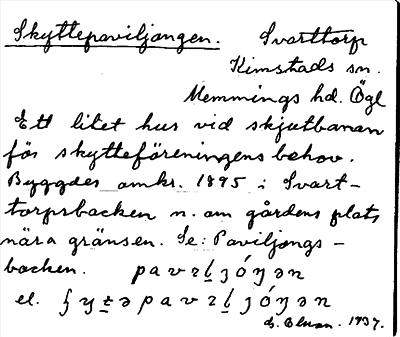 Skyttepaviljongen. Svarttorp
Kimstads sn.
Memmings hd. Ögl
Ett litet hus vid skjutbanan
för skytteföreningens behov.
Byggdes omkr. 1895 i Svart-
torpsbacken n. om gårdens plats
nära gränsen. Se: Paviljongs-
backen.
el.
1937.